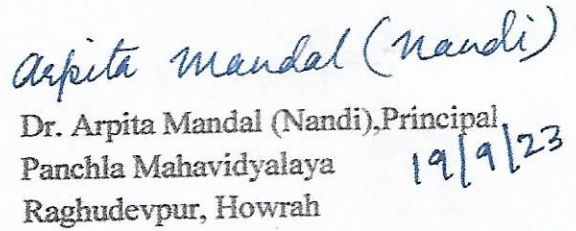 Arpita Mandal (Nandi)
Dr. Arpita Mandal (Nandi),Principal
Panchla Mahavidyalaya
19/9/23
Raghudevpur, Howrah